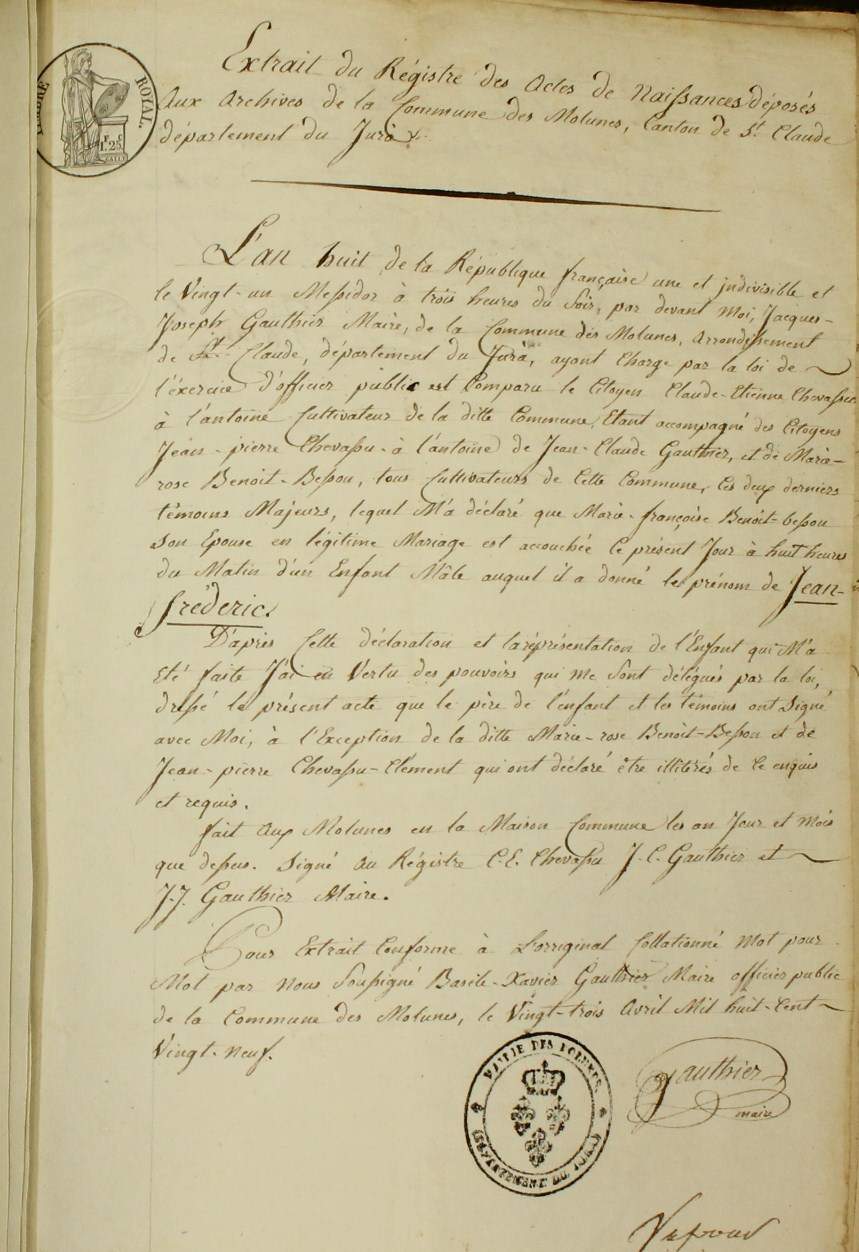 TIMBRE ROYAL.
1F. 25C
Extrait du Régistre des Actes de Naissances déposés
Aux Archives de la Commune des Molunes, Canton de St. Claude
département du Jura
L'an huit de la République française une et indivisible et
le Vingt-un Messidor à trois heures du Soir, par devant Moi, Jacques-
Joseph Gauthier Maire, de la Commune des Molunes, arrondissement
de St. Claude, département du Jura, ayant Charge par la loi de
l'éxercice d'officier public est Comparu le Citoyen Claude-Etienne Chevassu
à l'antoine Cultivateur de la ditte Commune, Etant accompagné des Citoyens
Jean-pierre Chevassu-à l'antoine de Jean-Claude Gauthier, et de Marie-
rose Benoit-Bessou, tous Cultivateurs de Cette Commune, les deux derniers
témoins Majeurs, lequel M'a déclaré que Marie-françoise Benoit-bessou
Son Epouse en légitime Mariage est accouchée le présent Jour à huit heures
du Matin d'un Enfant Mâle auquel il a donné le prénom de Jean-
frédéric.
D'après Cette déclaration et la réprésentation de l'Enfant qui M'a
Eté faite J'ai en Vertu des pouvoirs qui me Sont délégués par la loi,
dressé le présent acte que le père de l'enfant et les témoins ont Signé
avec Moi, à l'Exception de la ditte Marie-rose Benoit-Bessou et de
Jean-pierre Chevassu-Clément qui ont déclaré être illitérés de ce enquis
et requis.
fait aux Molunes en la Maison Commune les an Jour et Mois
que dessus. Signé au Régistre C.E. Chevassu J.C. Gauthier et
J.J. Gauthier Maire.
Pour Extrait Conforme à L'orriginal Collationné Mot pour
Mot par Nous Soussigné Basile-Xavier Gauthier Maire officier public
de la Commune des Molunes, le Vingt-trois Avril Mil huit-Cent
Vingt-Neuf.
MAIRIE DES MOLUNES.
(DEPARTEMENT DU JURA)
Gauthier
maire